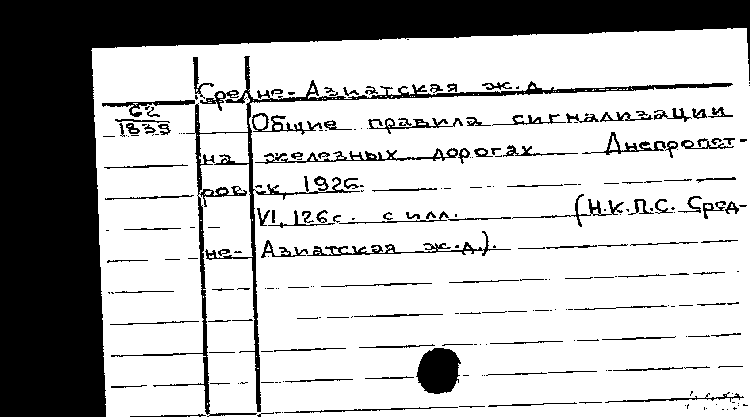 Средне-Азиатская ж.д.
62
1835
Общие правила сигнализации
на железных дорогах Днепропет-
ровск, 1926.
VI, 126с. с илл. (Н.К.П.С. Сред-
не-Азиатская ж.д.).